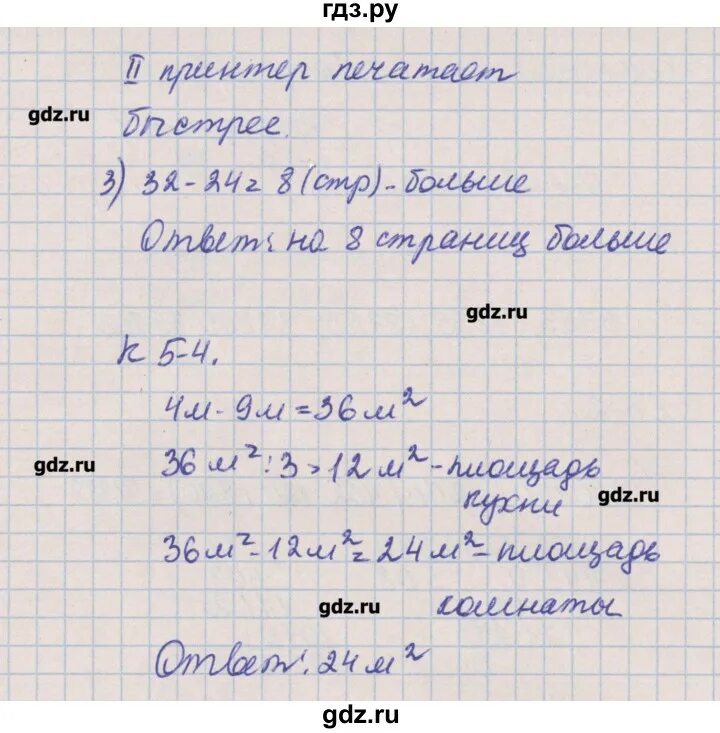 гдз.ру
II принтер печатает
gdz.ru
быстрее.
3) 32 - 24 = 8 (стр) - больше
Ответ: на 8 страниц больше
gdz.ru
К 5-4.
4м · 9м = 36 м²
gdz.ru
36 м² : 3 = 12 м² - площадь
кухни
gdz.ru
36 м² - 12 м² = 24 м² - площадь
gdz.ru
комнаты
Ответ: 24 м²
gdz.ru